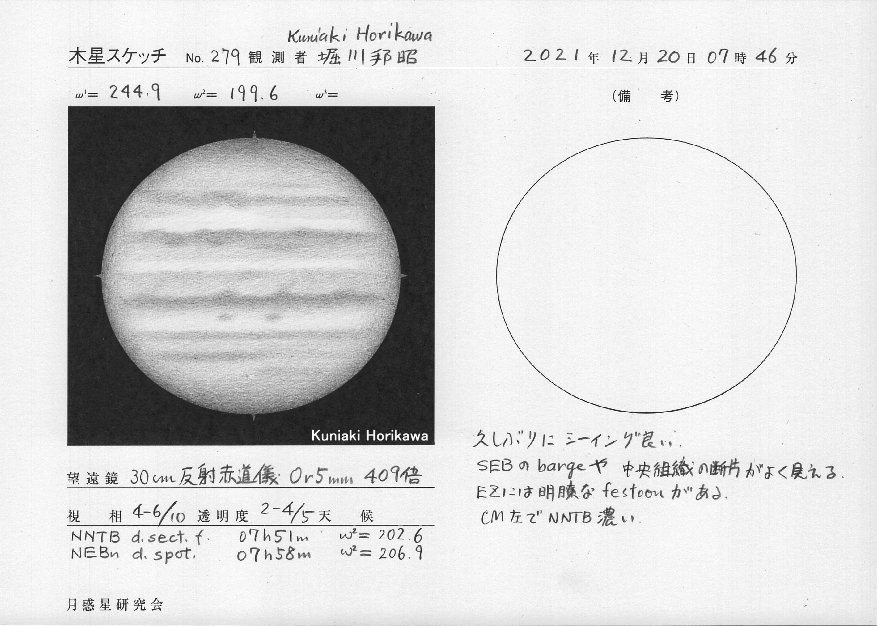 Kuniaki Horikawa
木星スケッチ No. 279 観測者 堀川邦昭
2021年 12月 20日 07時 46分
ω¹= 244.9 ω²= 199.6 ω³=
(備 考)
Kuniaki Horikawa
久しぶりに シーイング良い.
SEBのbargeや 中央組織の断片がよく見える.
EZには明瞭な festoonがある.
CM左でNNTB 濃い.
望遠鏡 30cm反射赤道儀 Or5mm 409倍
視 相 4-6/10 透明度 2-4/5 天 候
NNTB d.sect. f. 07h51m ω²= 202.6
NEBn d. spot. 07h58m ω²= 206.9
月惑星研究会